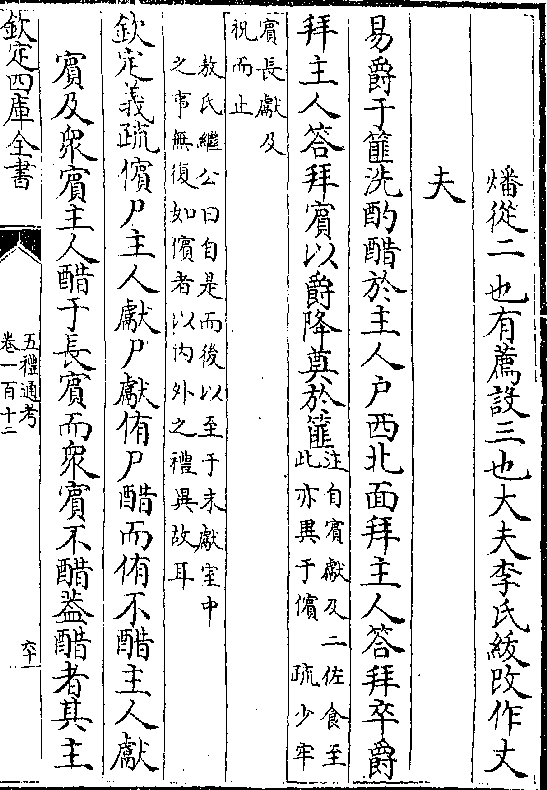 燔從二也有薦設三也大夫李氏紱改作丈
夫
易爵于篚洗酌醋於主人户西北面拜主人答拜卒爵
拜主人答拜賓以爵降奠於篚注自賓獻及二佐食至
此亦異于儐　疏少牢
賓長獻及
祝而止
敖氏繼公曰自是而後以至于末獻室中
之事無復如儐者以内外之禮異故耳
欽定義疏儐尸主人獻尸獻侑尸醋而侑不醋主人獻
賓及衆賓主人醋于長賓而衆賓不醋蓋醋者其主
欽定四庫全書
五禮通考
卷一百十二
卒